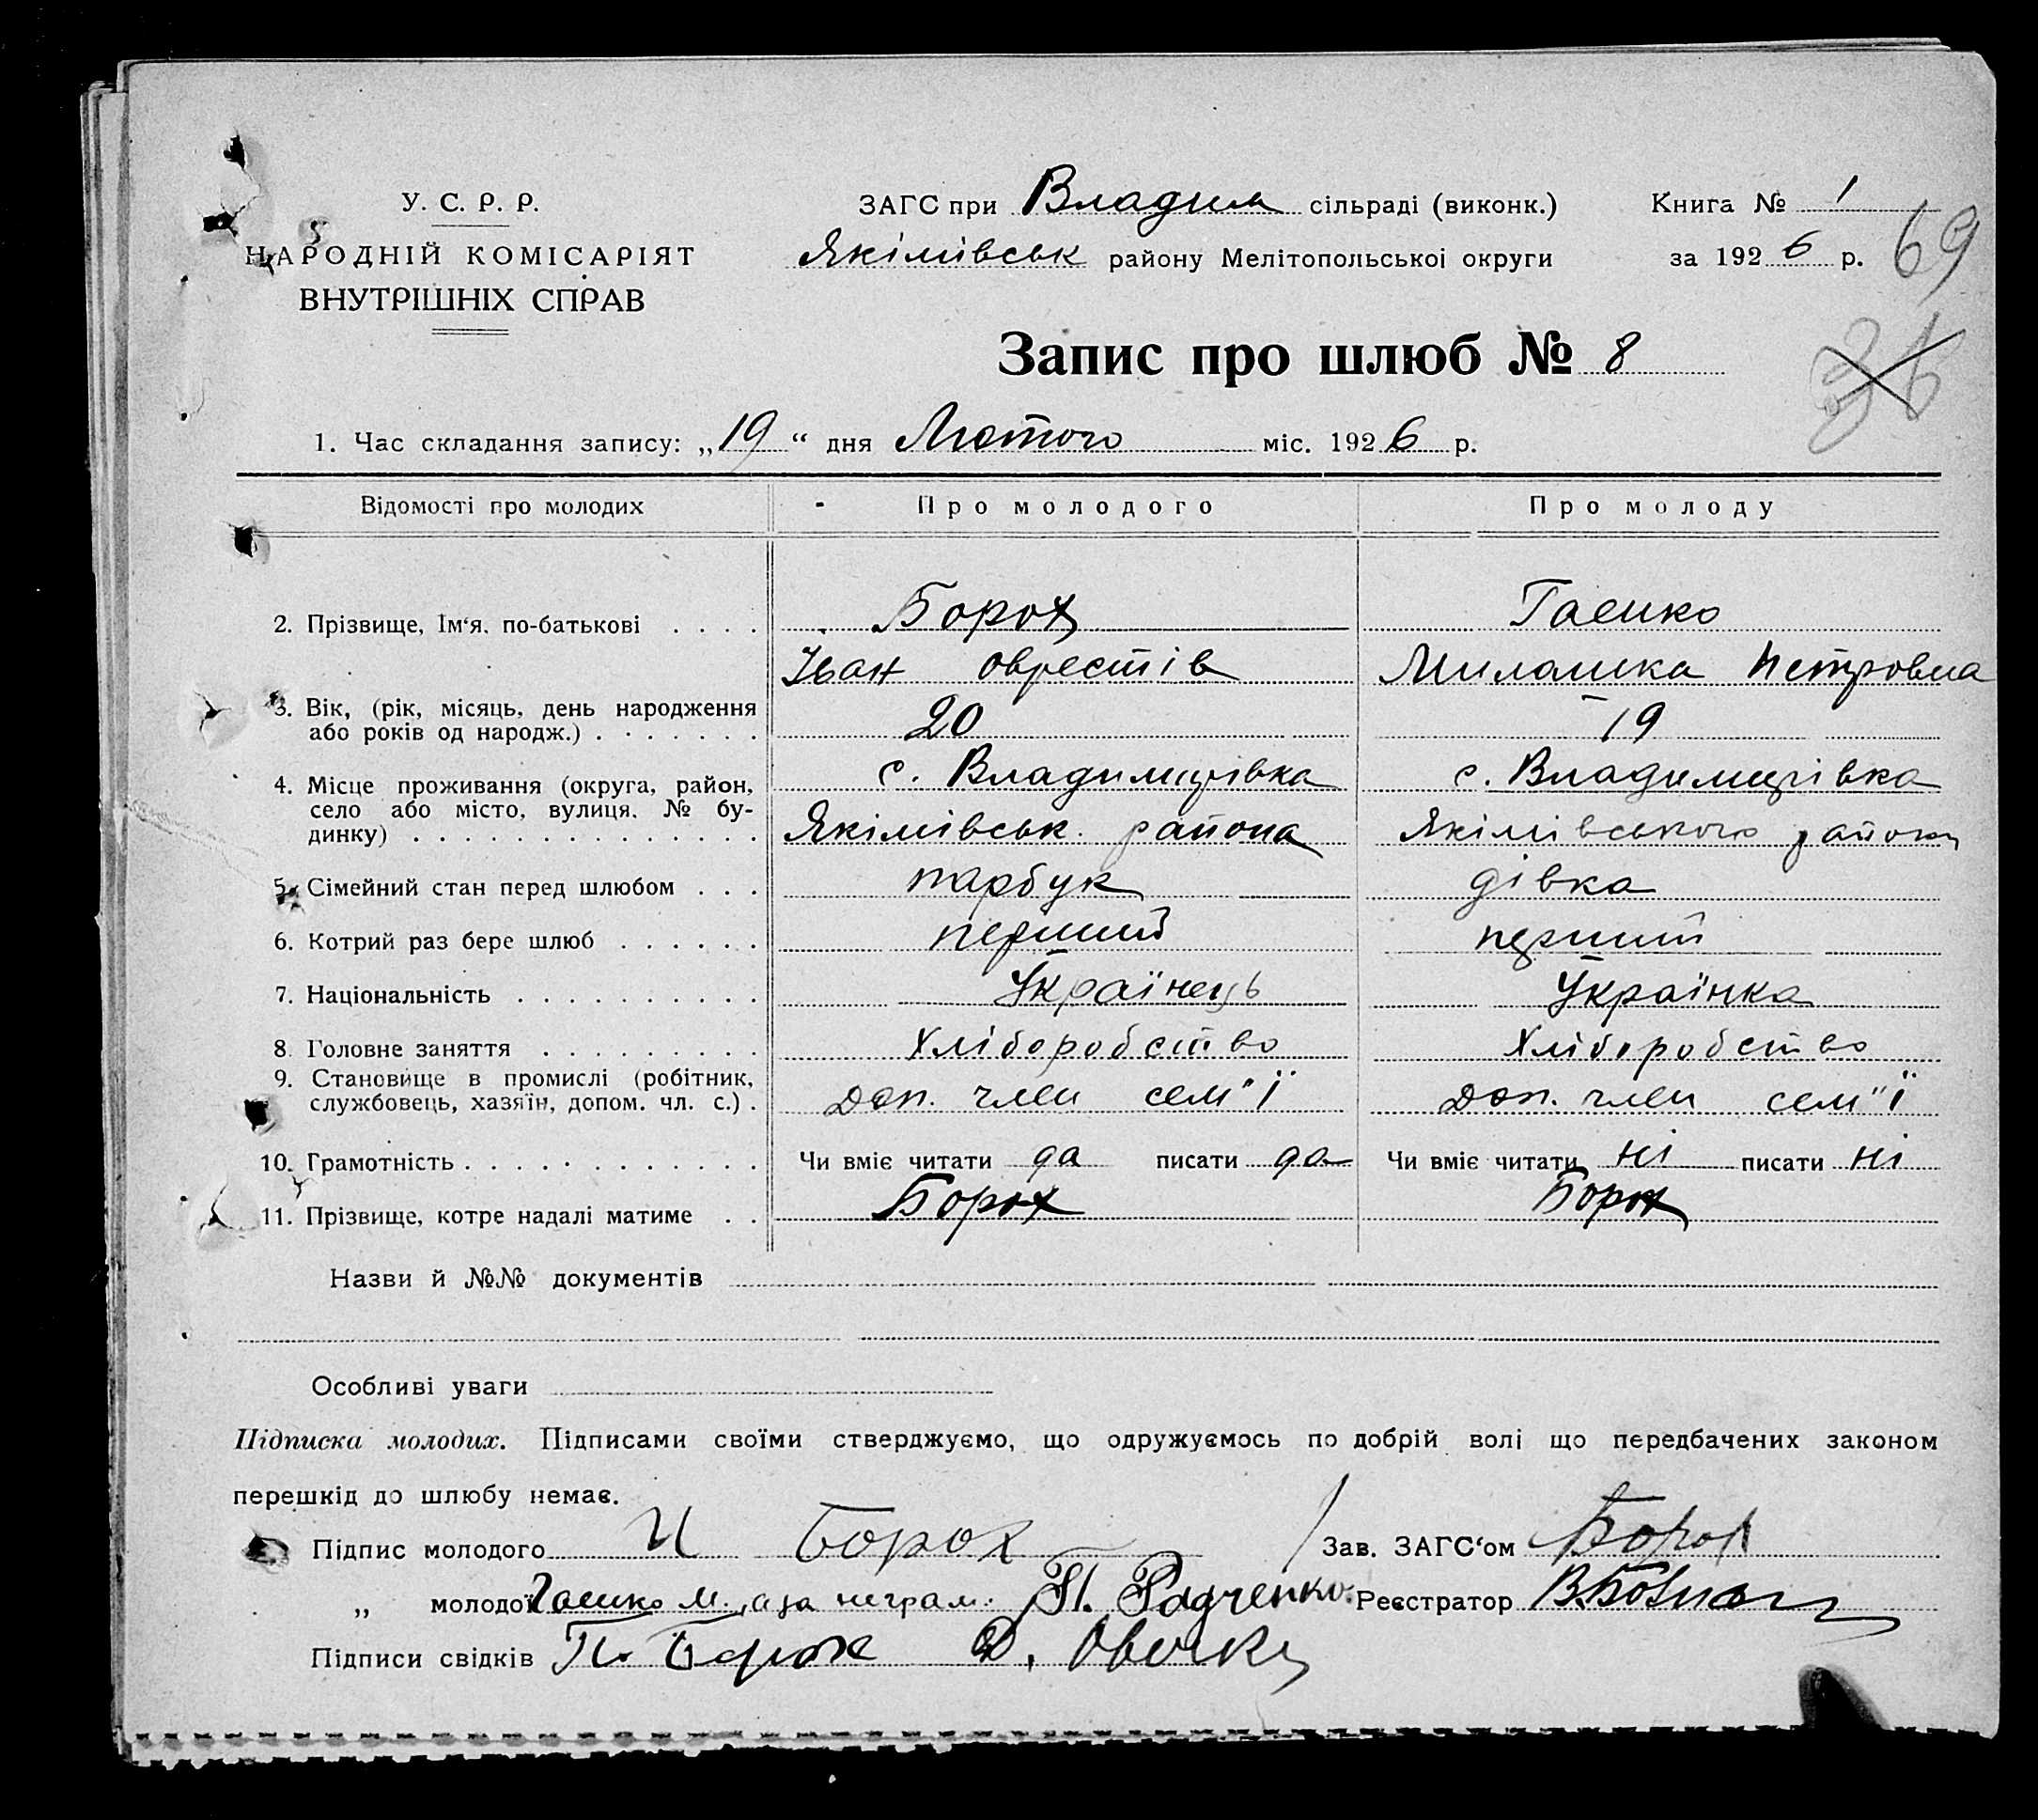 У. С. Р. Р.
НАРОДНІЙ КОМІСАРІЯТ
ВНУТРІШНІХ СПРАВ
ЗАГС при Владим сільраді (виконк.)
Якімівськ району Мелітопольської округи
Книга № 1
за 1926 р.
69
36
Запис про шлюб № 8
1. Час складання запису: „19“ дня Лютого міс. 1926 р.
Відомості про молодих Про молодого Про молоду
2. Прізвище, Ім‘я, по-батькові . . . . Борох Гаєнко
Іван Оврестів Милашка Петровна
3. Вік, (рік, місяць, день народження
або років од народж.) . . . . . . . 20 19
4. Місце проживання (округа, район, с. Владимирівка с. Владимирівка
село або місто, вулиця, № бу-
динку) . . . . . . . . . . . . . . Якімівськ. района Якімівського району
5. Сімейний стан перед шлюбом . . . парбук дівка
6. Котрий раз бере шлюб . . . . . . перший перший
7. Національність . . . . . . . . . . Українець Українка
8. Головне заняття . . . . . . . . . Хліборобство Хліборобство
9. Становище в промислі (робітник,
службовець, хазяїн, допом. чл. с.) . Доп. член сем"ї Доп. член сем"ї
10. Грамотність . . . . . . . . . . . . Чи вміє читати да писати да Чи вміє читати ні писати ні
11. Прізвище, котре надалі матиме . . Борох Борох
Назви й №№ документів
Особливі уваги
Підписка молодих. Підписами своїми стверджуємо, що одружуємось по добрій волі що передбачених законом
перешкід до шлюбу немає.
Підпис молодого И Борох Зав. ЗАГС‘ом Борох
„ молодої Гаенко М., а за неграм. П. Радченко Реєстратор
Підписи свідків П. Борох Д. Овечка